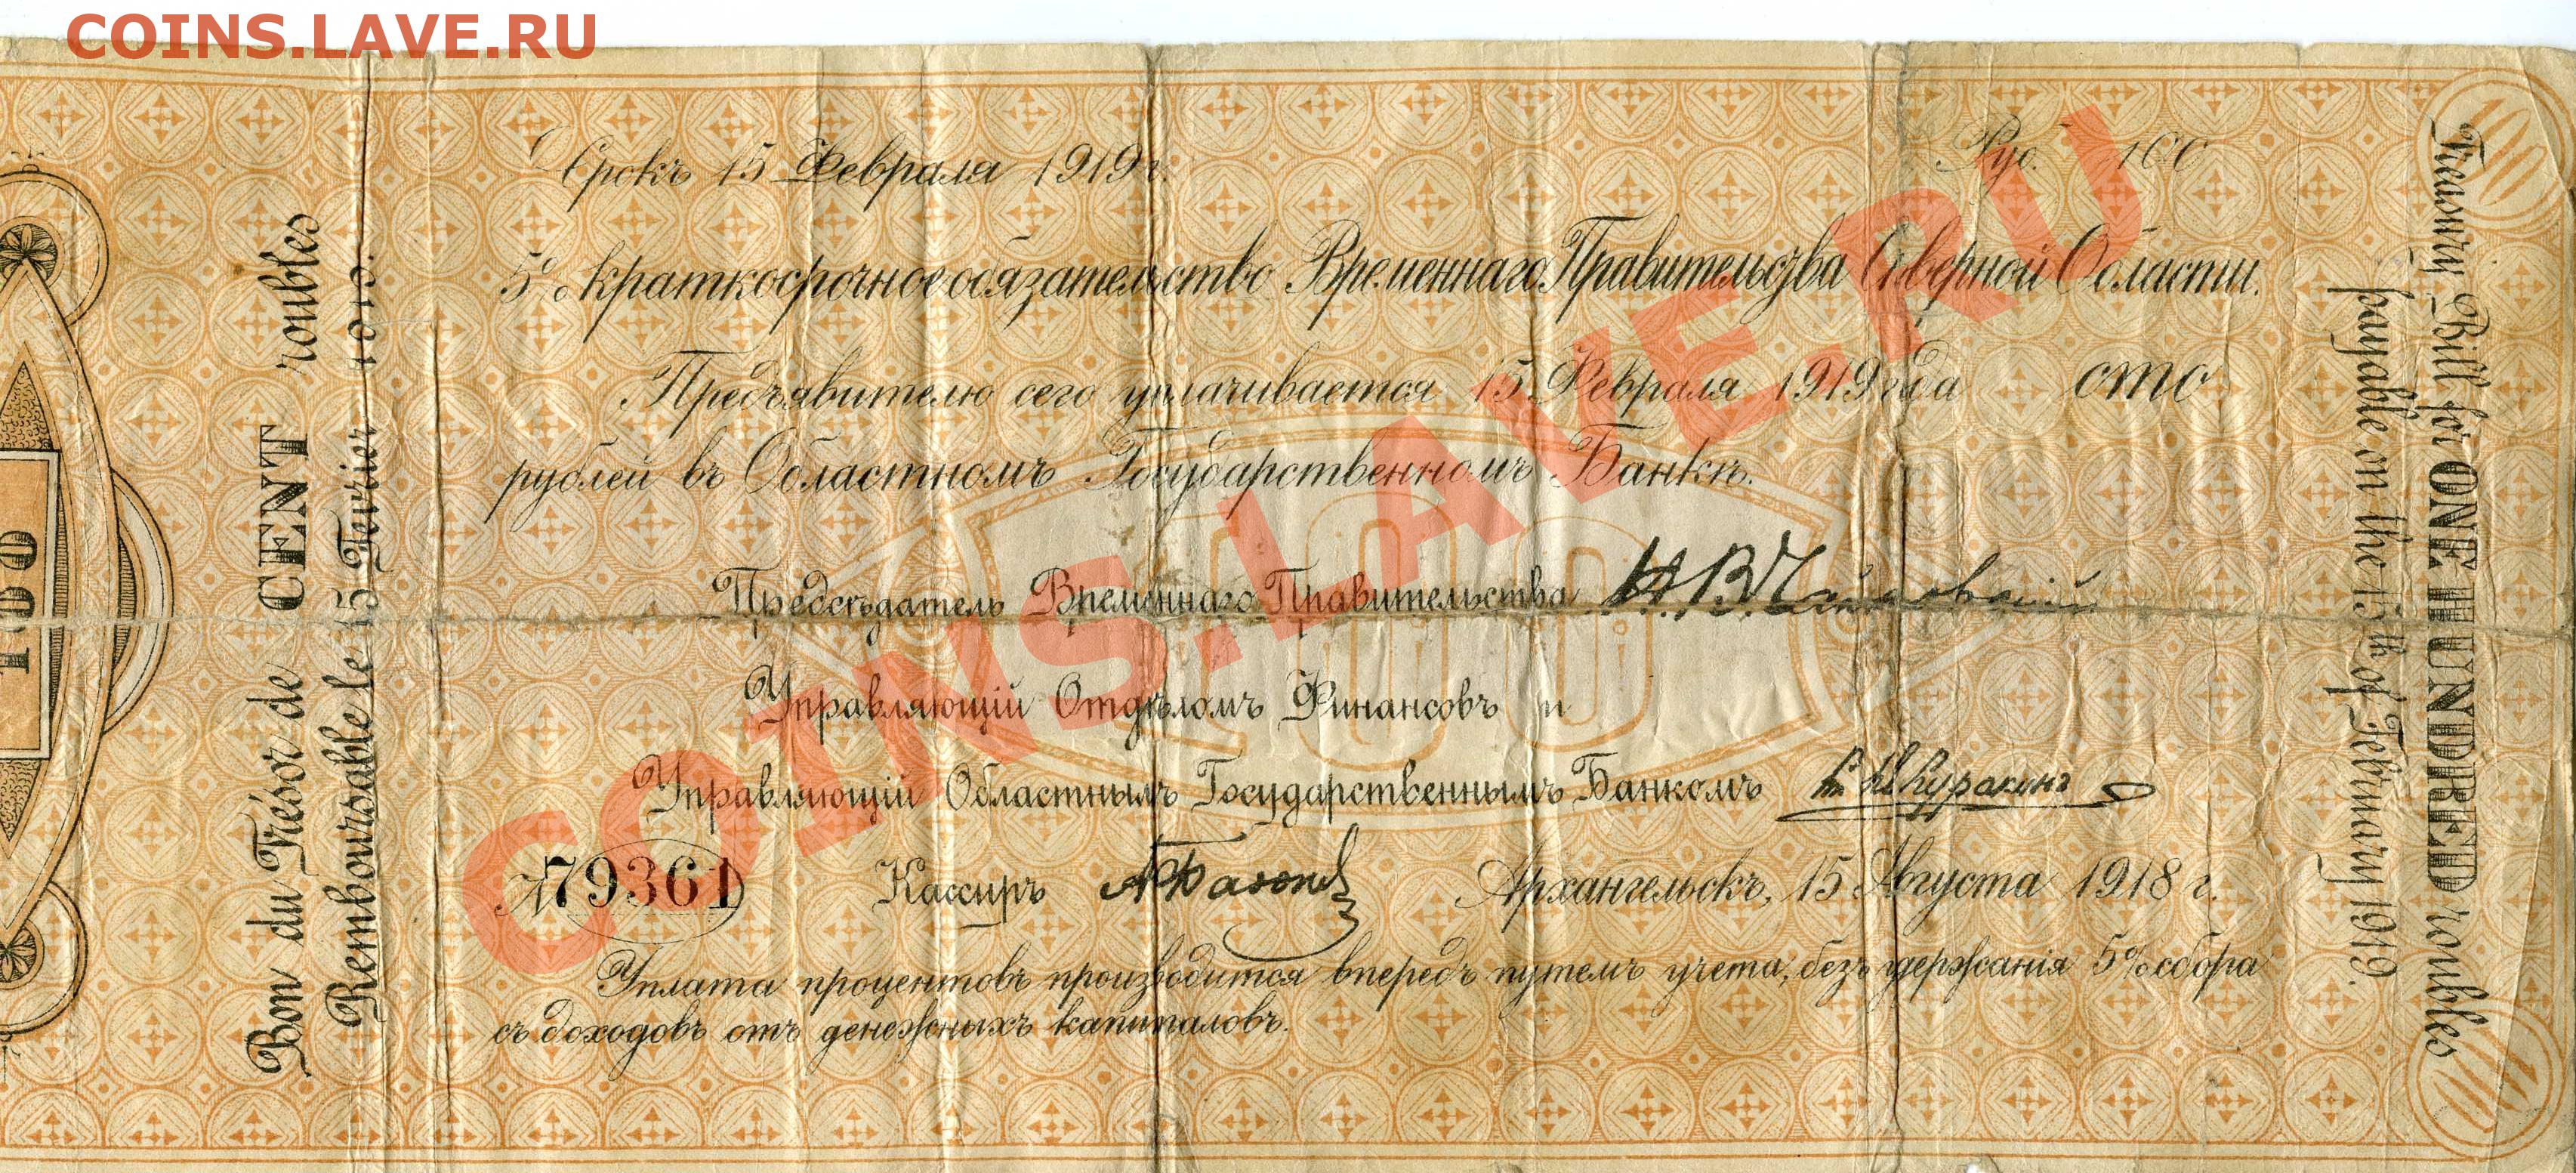 COINS.LAVE.RU
Срокъ 15 Февраля 1919 г.
Руб. 100
5% краткосрочное обязательство Временнаго Правительства Сѣверной Области.
Предъявителю сего уплачивается 15 Февраля 1919 года сто
рублей въ Областномъ Государственномъ Банкѣ.
Предсѣдатель Временнаго Правительства Н.В.Чайковскій
Управляющій Отдѣломъ Финансовъ и
Управляющій Областнымъ Государственнымъ Банкомъ Кн. И. Куракинъ
А79361
Кассиръ
Архангельскъ, 15 Августа 1918 г.
Уплата процентовъ производится впередъ путемъ учета, безъ удержанія 5% сбора
съ доходовъ отъ денежныхъ капиталовъ.
Bon du Trésor de CENT roubles
Remboursable le 15 Fevrier 1919.
100
Treasury Bill for ONE HUNDRED roubles
payable on the 15th of February 1919.
100
COINS.LAVE.RU